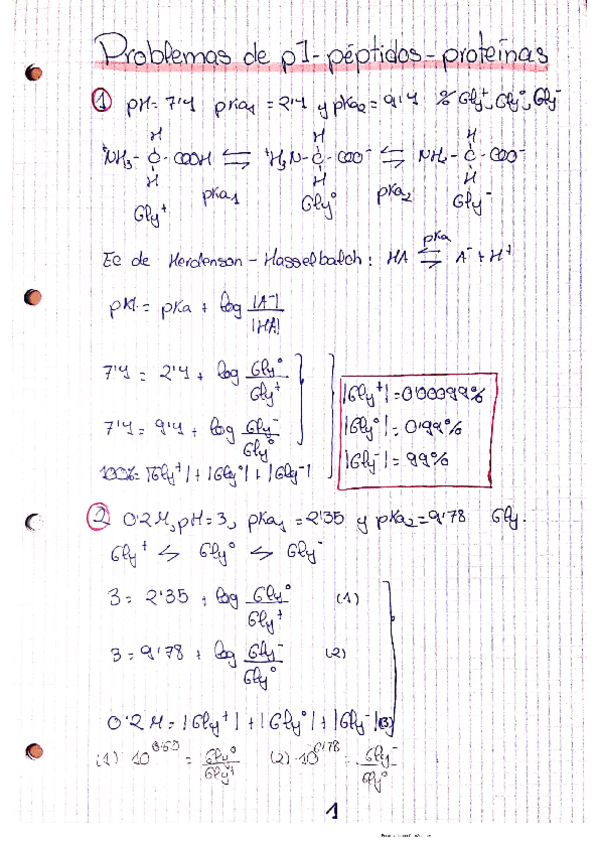 Problemas de pI-péptidos-proteínas
① pH= 7'4 pKa1 = 2'4 y pKa2= 9'4 % Gly⁺, Gly⁰, Gly⁻
H H H
⁺NH3- C - COOH ⇌ ⁺H3N- C - COO⁻ ⇌ NH2- C - COO⁻
H H H
Gly⁺ pKa1 Gly⁰ pKa2 Gly⁻
Ec de Henderson-Hasselbalch: HA ⇌ A⁻ + H⁺
pKa
pH = pKa + log |A⁻|/|HA|
7'4 = 2'4 + log Gly⁰/Gly⁺
7'4 = 9'4 + log Gly⁻/Gly⁰
100% = |Gly⁺| + |Gly⁰| + |Gly⁻|
|Gly⁺| = 0'00099%
|Gly⁰| = 0'99%
|Gly⁻| = 99%
② 0'2 M, pH=3, pKa1 = 2'35 y pKa2=9'78 Gly.
Gly⁺ ⇌ Gly⁰ ⇌ Gly⁻
3 = 2'35 + log Gly⁰/Gly⁺ (1)
3 = 9'78 + log Gly⁻/Gly⁰ (2)
0'2 M = |Gly⁺| + |Gly⁰| + |Gly⁻| (3)
(1) 10 = Gly⁰/Gly⁺ (2) 10 = Gly⁻/Gly⁰
1